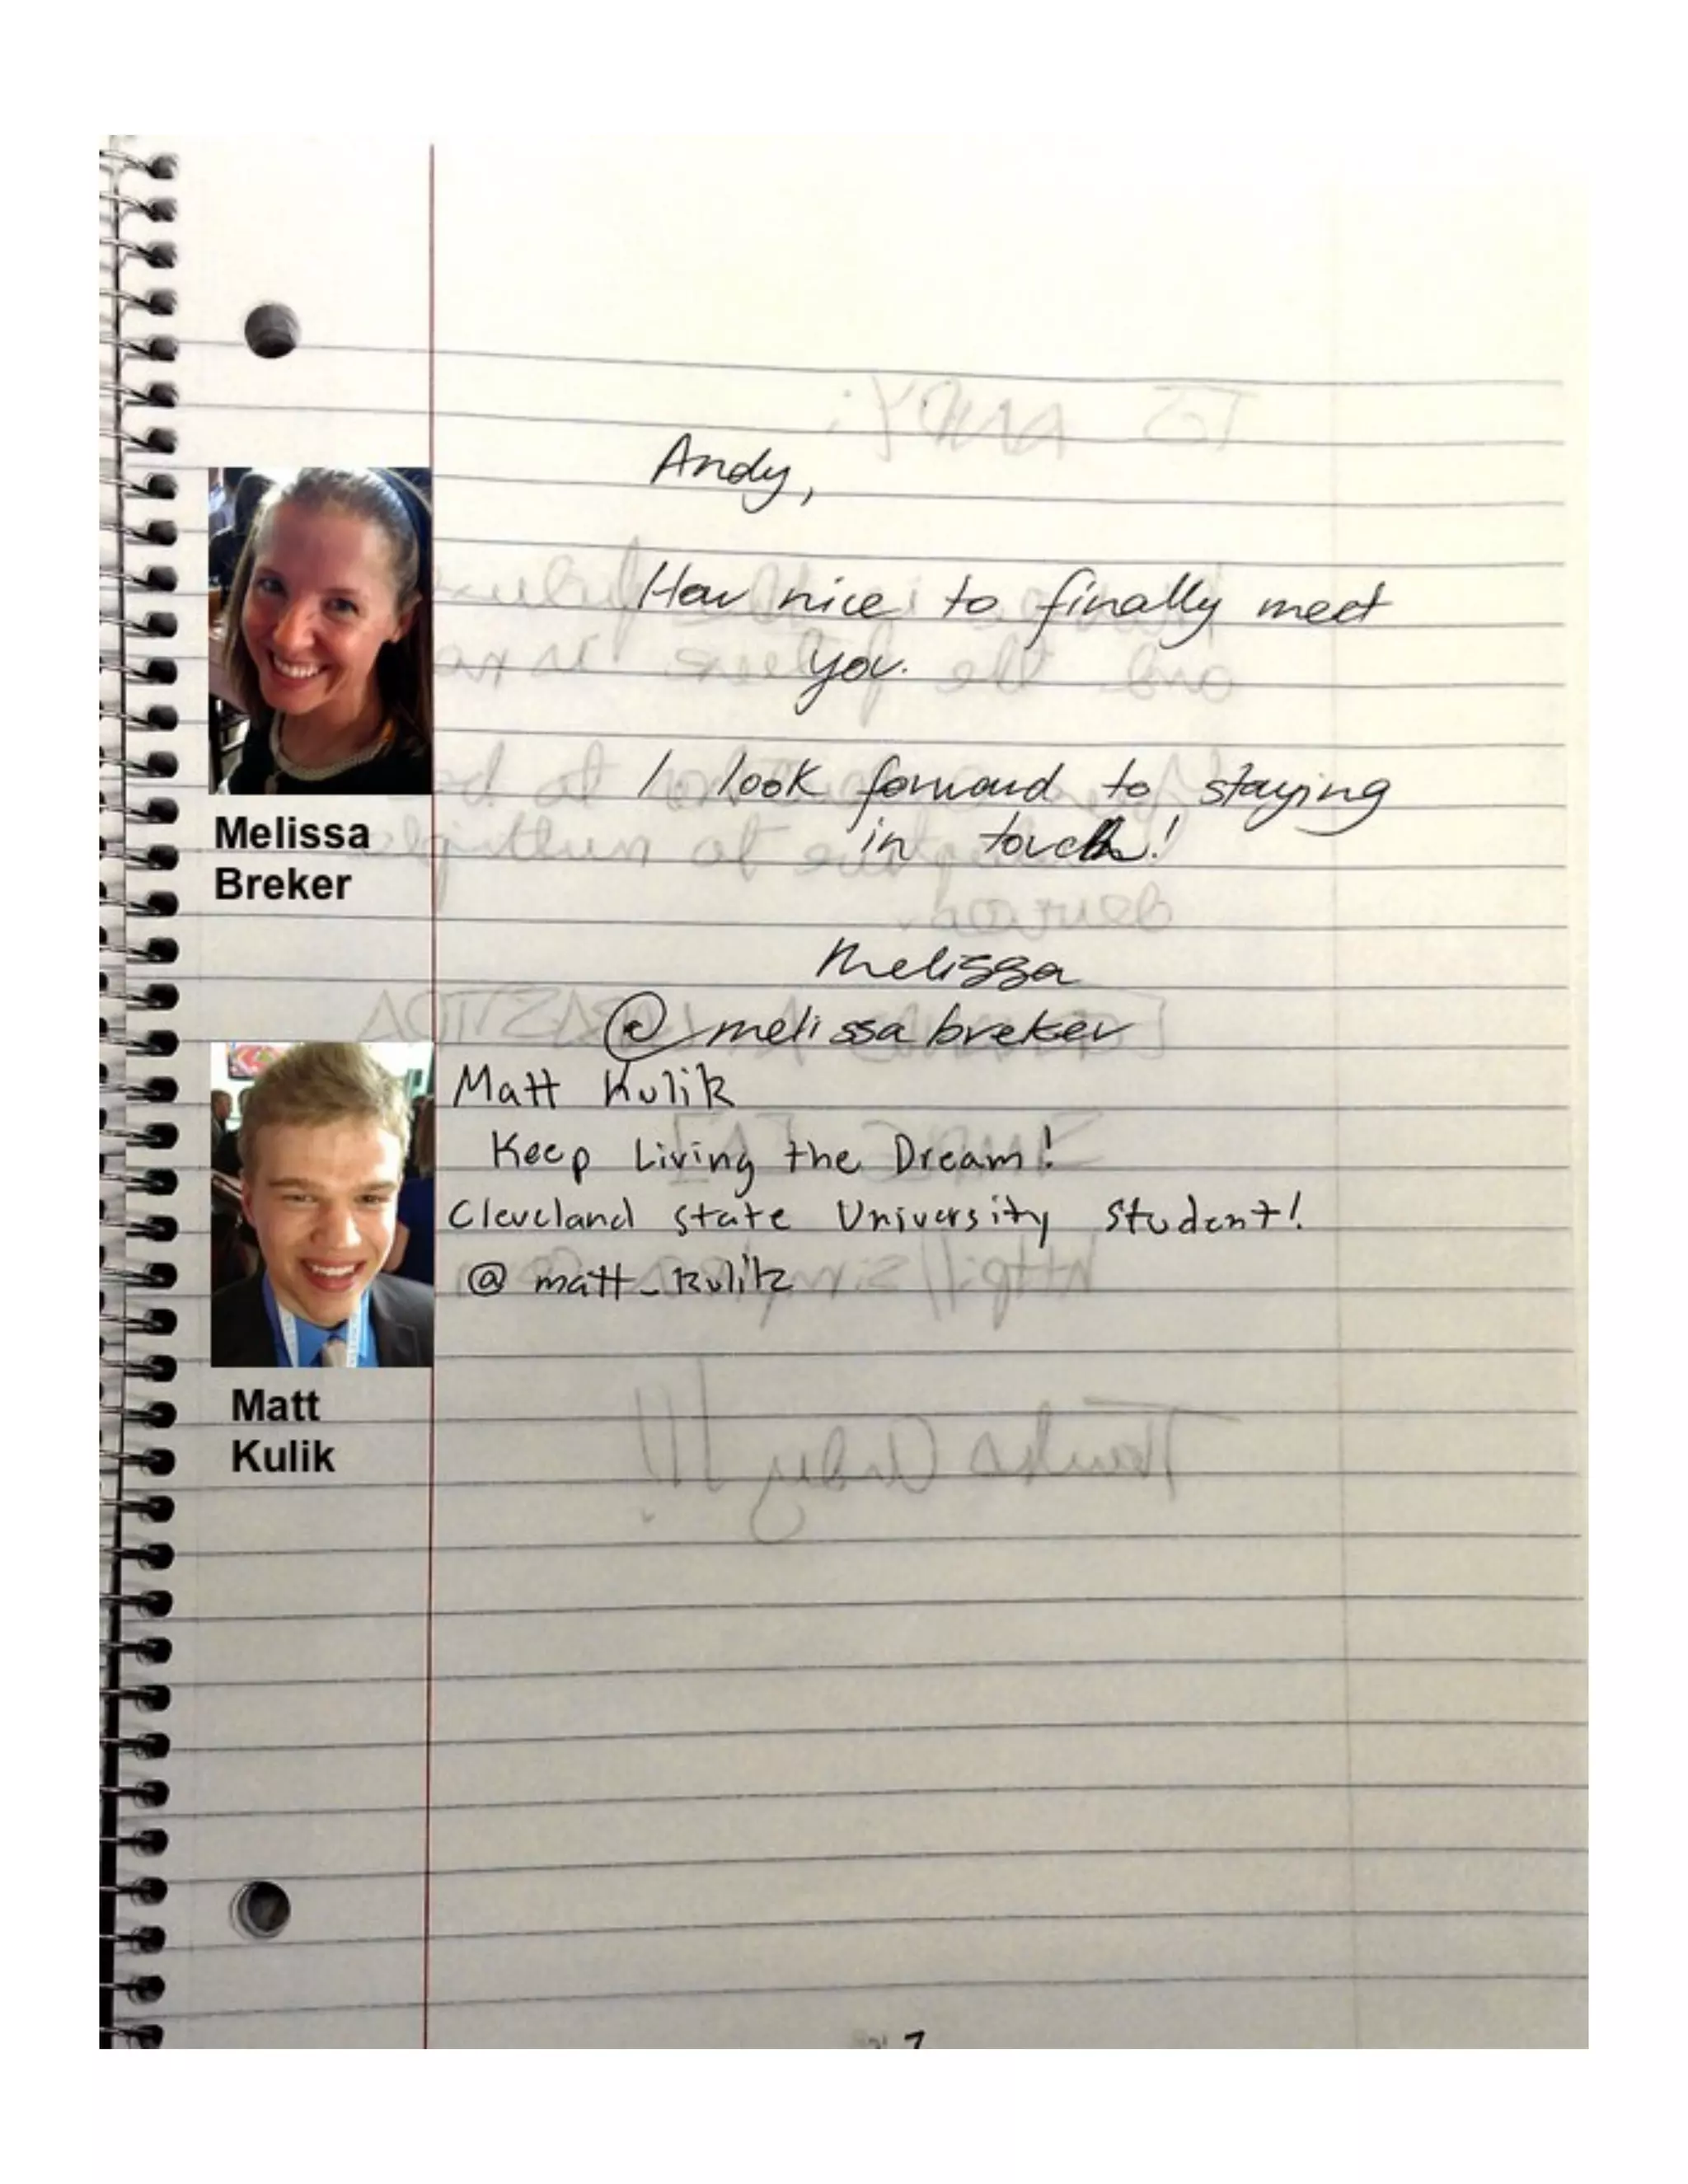 Andy,
How nice to finally meet
you.
I look forward to staying
in touch!
Melissa
@melissabreker
Melissa
Breker
Matt Kulik
Keep Living the Dream!
Cleveland State University Student!
@matt_kulik
Matt
Kulik
7